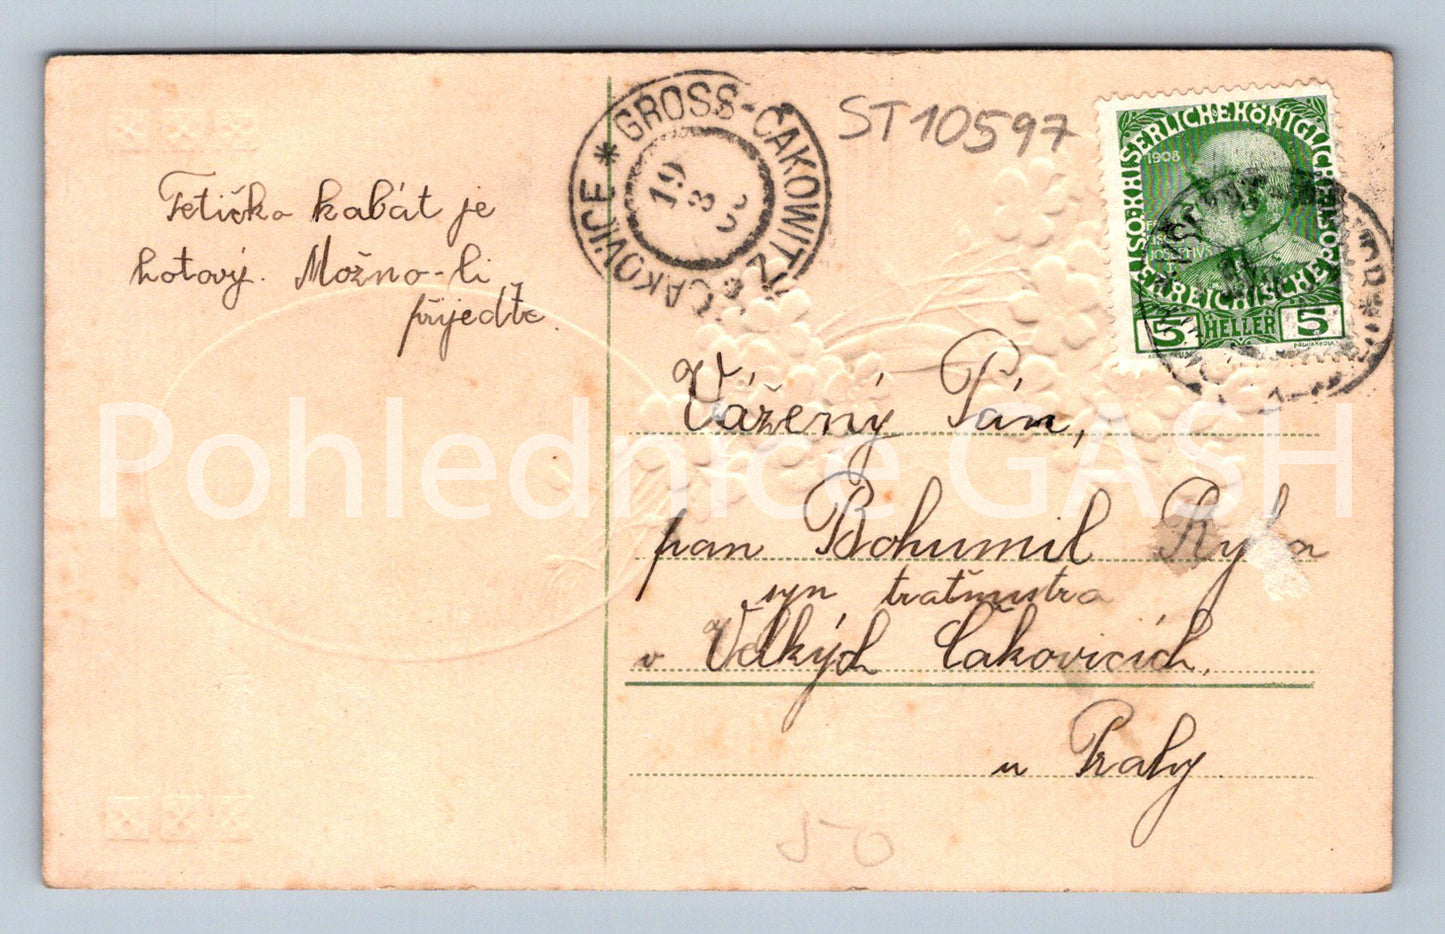 Tetičko kabát je
hotový. Možno-li
přijeďte.
* GROSS-ČAKOWITZ *
ČAKOVICE
19
8
ST10597
K*K*KAISERLICHEKÖNIGLICHE
ÖSTERREICHISCHE POST
1908
JOSEPHVS
5 HELLER 5
Vážený Pán,
pan Bohumil Ryba
syn traťmistra
v Velkých Čakovicích.
u Prahy.
50
Pohlednice GASH